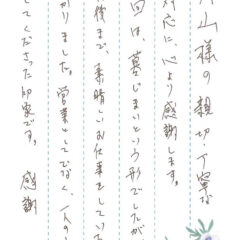 山様の親切、丁寧な
対応に、心より感謝します。
回は、墓じまいという形でしたが
後まで、素晴しいお仕事をしていた
かりました。営業としてでなく、一人の
してくださった印象です。感謝